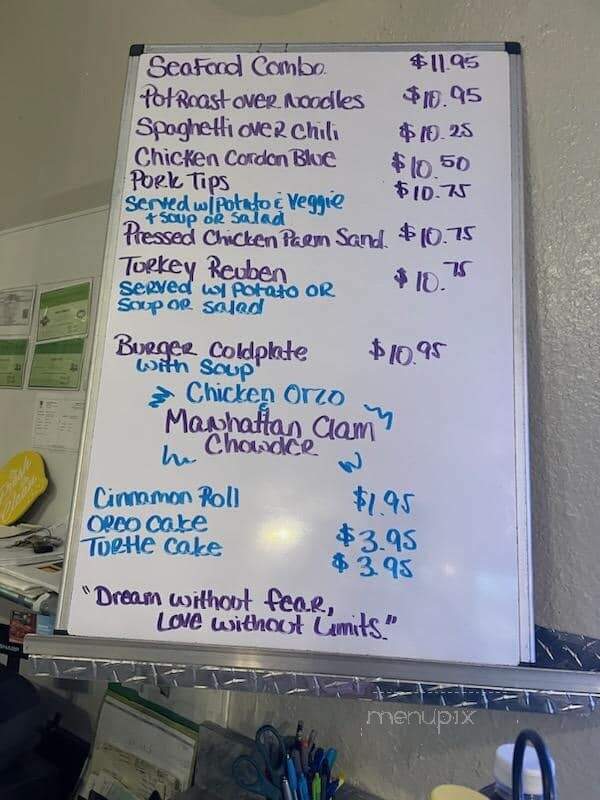 Seafood Combo $11.95
Pot Roast over Noodles $10.95
Spaghetti over Chili $10.25
Chicken Cordon Blue $10.50
Pork Tips $10.75
Served w/ Potato & Veggie
+ Soup or Salad
Pressed Chicken Parm Sand. $10.75
Turkey Reuben $10.75
Served w/ Potato or
Soup or Salad
Burger Coldplate $10.95
with Soup
Chicken Orzo
&
Manhattan Clam
Chowder
Cinnamon Roll $1.95
Oreo Cake $3.95
Turtle Cake $3.95
"Dream without fear,
Love without Limits."
menupix